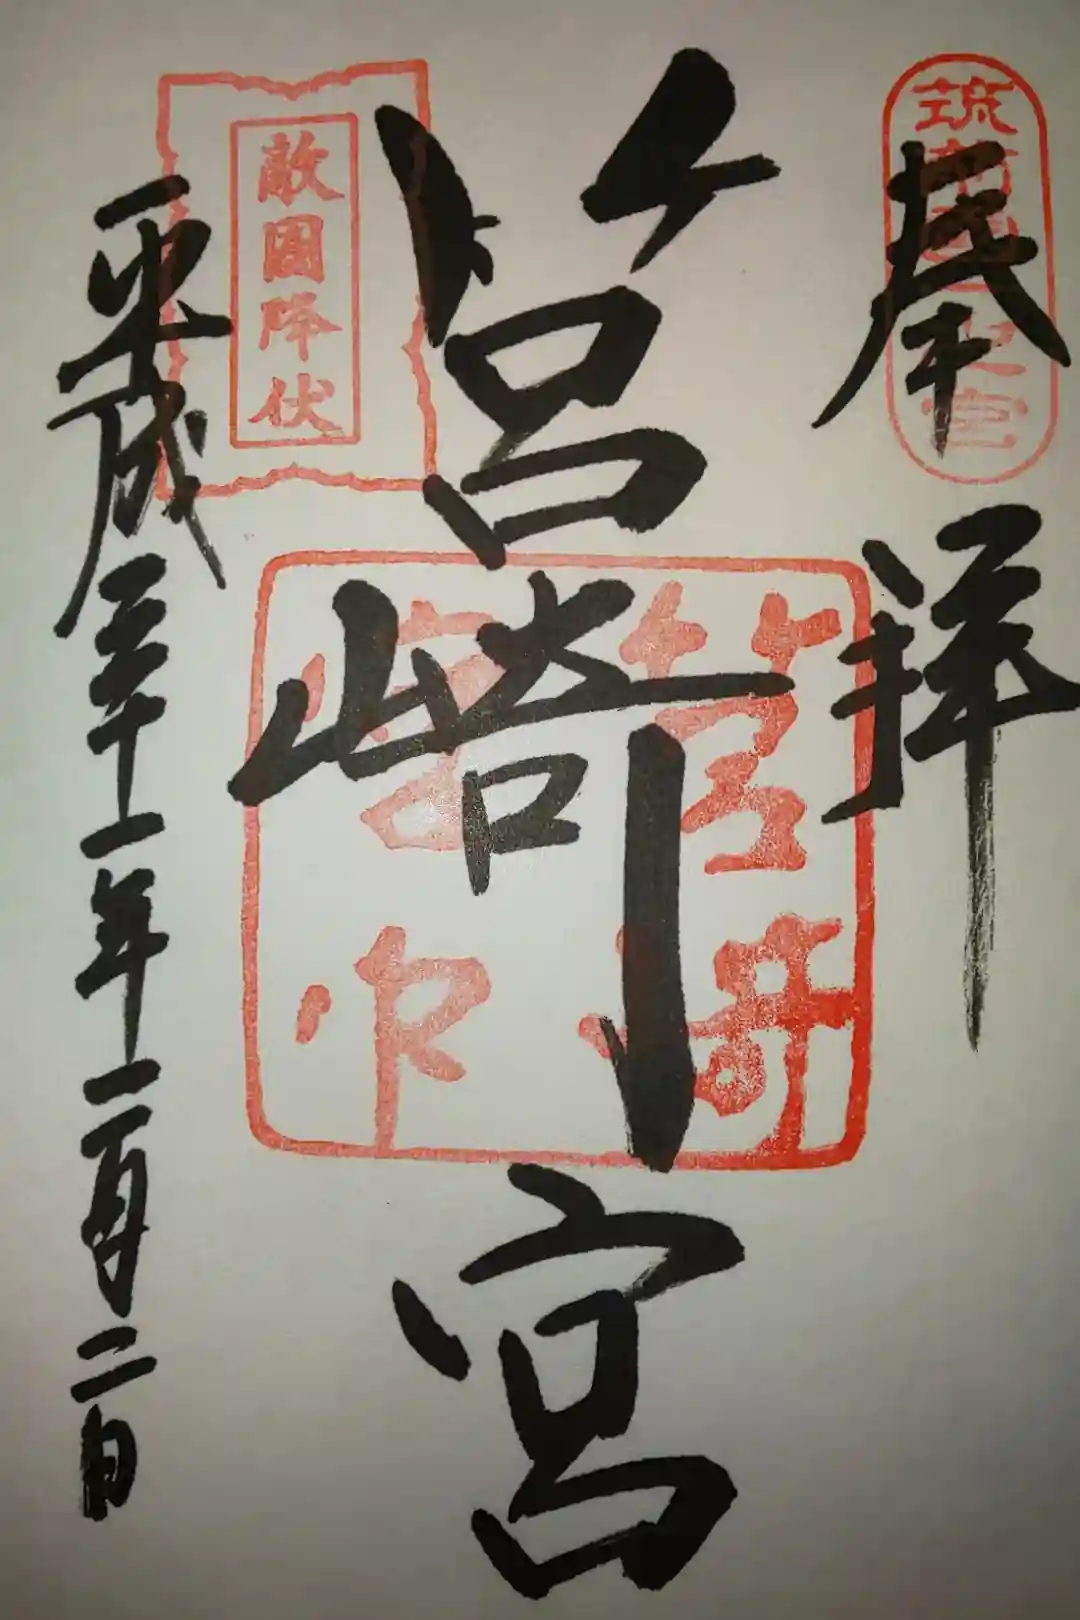 筑前國一之宮
奉拝
筥崎宮
筥崎宮印
敵國降伏
平成三十一年一月二日